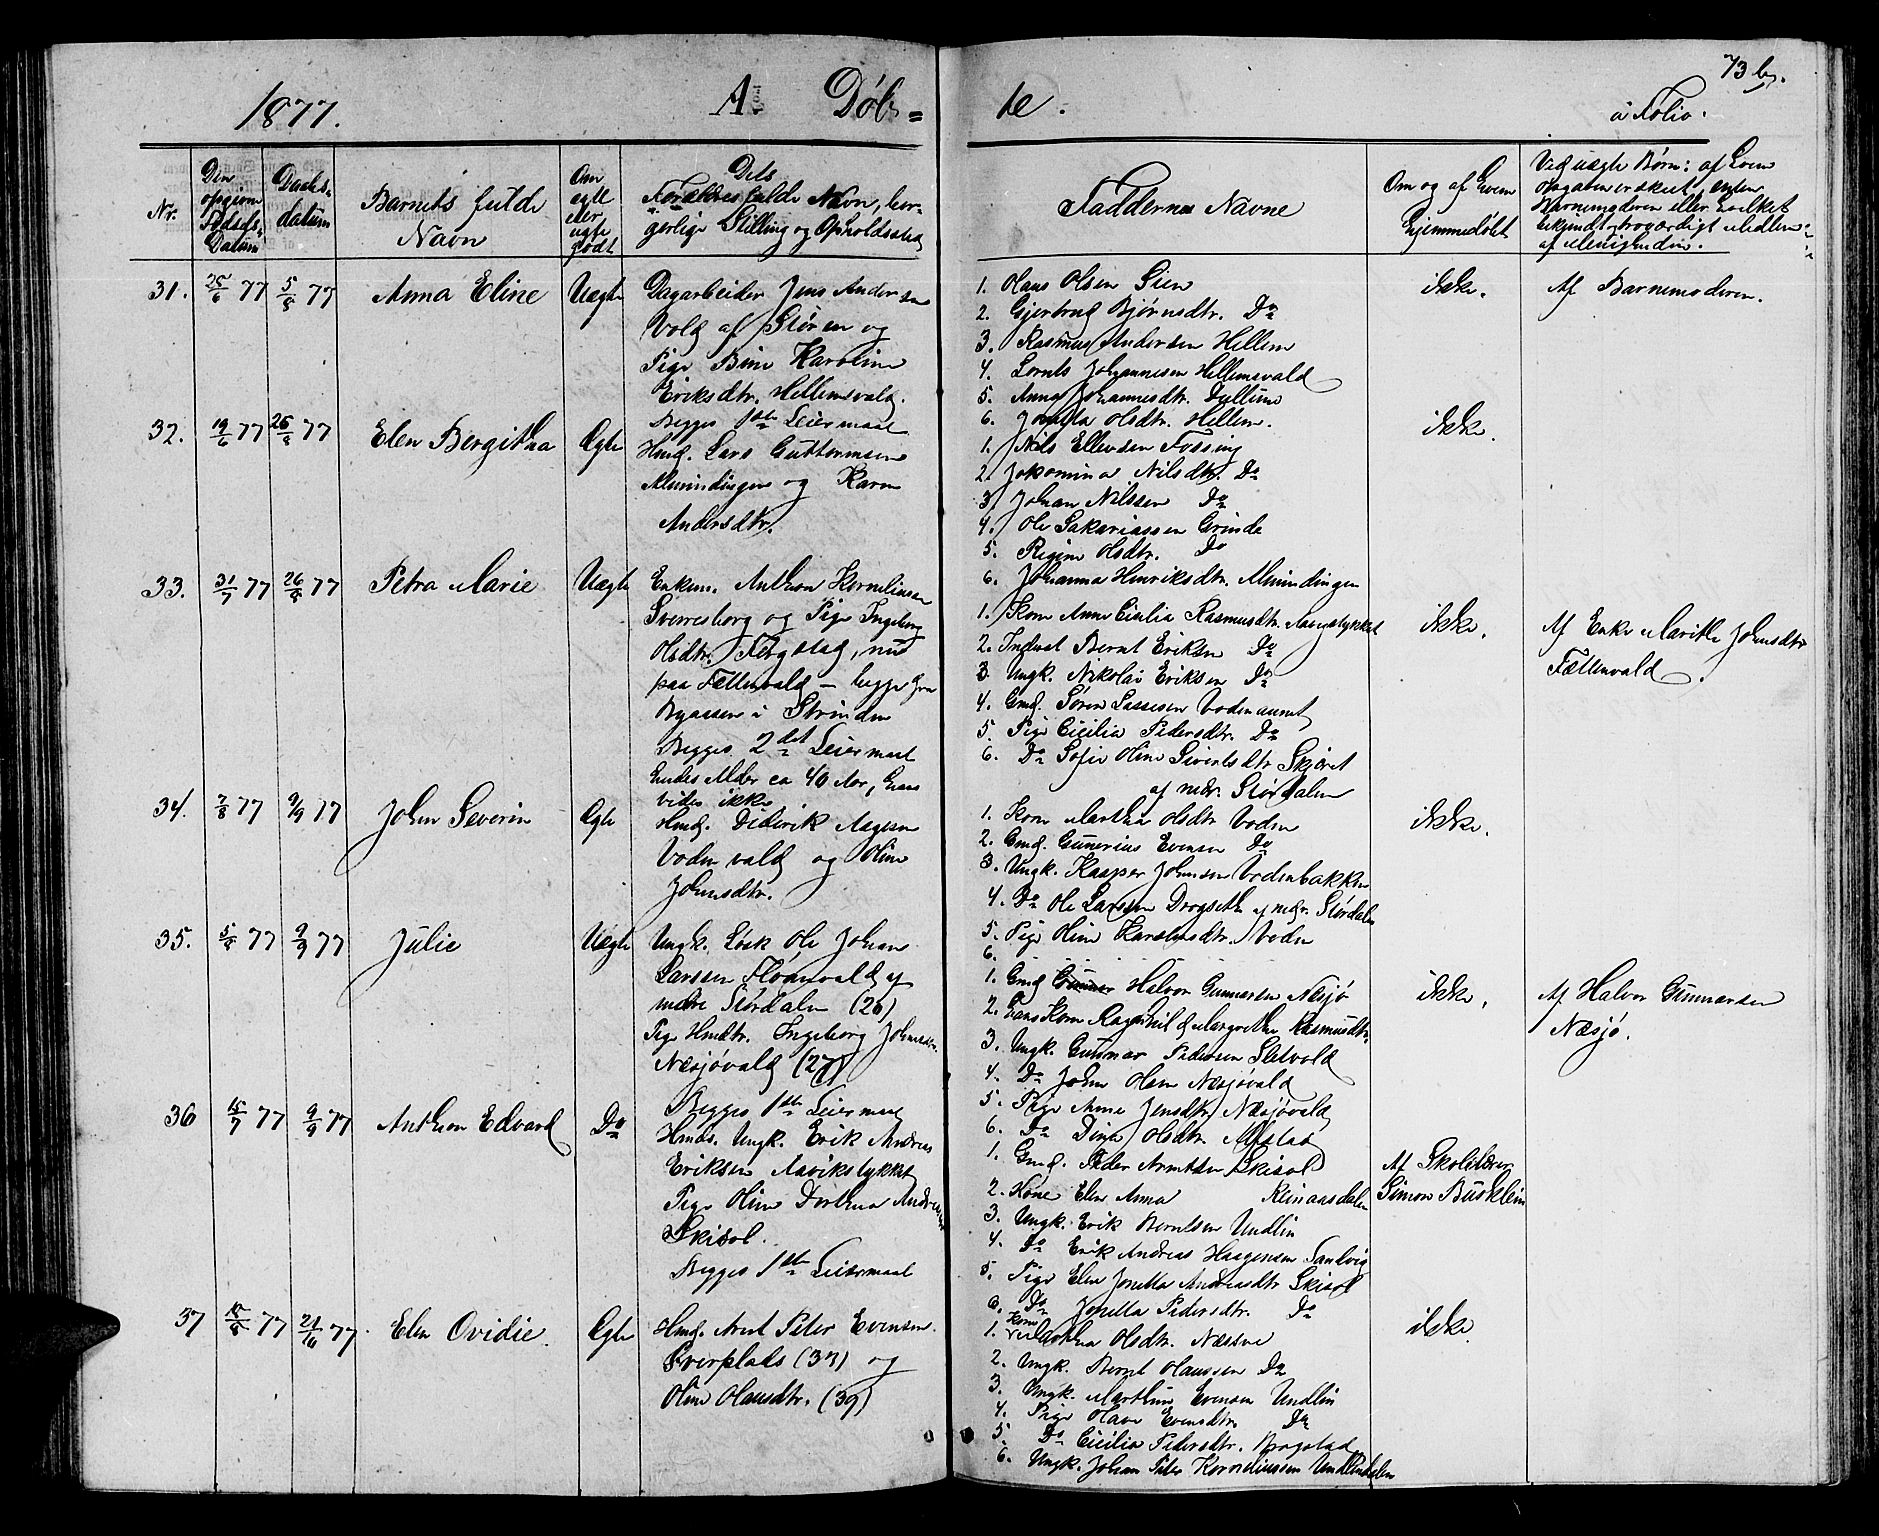 1877. A. Døb= te. 73 b.
à Folio.
Nr.
Den opgivne Fødsels-Datum
Daabs-datum
Barnets fulde Navn
Om egte eller uegte født
Dets Forældres fulde Navn, bor-
gerlige Stilling og Opholdssted
Faddernes Navne
Om og af Hvem Hjemmedøbt
Ved uegte Børn: af Hvem
Opgaven er skeet, enten
Barnemoderen eller hvilket
bekjendt troværdigt Medlem
af Menigheden.
31. 25/6 77 5/8 77 Anna Eline Uegte
Dagarbeider Jens Andersen
Vold af Støren og
Pige Bine Karoline
Eriksdtr. Hellemsvald.
Begges 1ste Leiermaal
1. Hans Olsen Sien
2. Gjertrud Bjørnsdtr. Do
3. Rasmus Andersen Hellem
4. Lornts Johannesen Hellemsvald
5. Anna Johannesdtr. Dullum
6. Jonetta Olsdtr. Hellem.
ikke.
Af Barnemoderen.
32. 19/6 77 26/8 77 Elen Bergitha Egte
Hmd. Lars Guttormsen
Almindingen og Karen
Andersdtr.
1. Nils Ellevsen Fossing
2. Jokomina Nilsdtr. Do
3. Johan Nilssen Do
4. Ole Sakariassen Grinde
5. Regine Olsdtr. Do
6. Johanna Henriksdtr. Almindingen
ikke.
33. 31/7 77 26/8 77 Petra Marie Uegte
Enkem. Anthon Kornelius
Sverresborg og Pige Ingeborg
Olsdtr. Fergstad, nu
paa Fættenvald – begge fra
Byaasen i Strinden
Begges 2det Leiermaal
hendes Alder ca 40 Aar, hans
vides ikke
1. Kone Anne Cicilia Rasmusdtr. Aavigstykket
2. Inderst Bernt Eriksen Do
3. Ungk. Nikolai Eriksen Do
4. Gmd. Søren Lassesen Vodenaunet
5. Pige Cicilia Pedersdtr. Do
6. Do Sofie Oline Sivertsdtr Skjøret
af nedr. Størdalen
ikke.
Af Enke Marithe Johnsdtr
Fættenvald.
34. 7/8 77 9/9 77 John Severin Egte
Hmd. Diderik Aagesen
Voden vald og Oline
Johnsdtr.
1. Kone Martha Olsdtr Voden
2. Gmd. Gunerius Evensen Do
3. Ungk. Kasper Johnsen Vodenbakken
4. Do Ole Larsen Drogseth af nedr. Størdalen
5. Pige Oline Karolusdtr. Voden
6.
ikke.
35. 5/8 77 9/9 77 Julie Uegte
Ungk. Løsk Ole Johan
Larssen Fløanvald af
nedre Størdalen (26)
Pige Hmdtr. Ingeborg Johnsdtr.
Næsjøvald (27)
Begges 1ste Leiermaal
1. Gmd Halvor Gunnarsen Næsjø
2. Hans Kone Ragnhild Margrethe Rasmusdtr.
3. Ungk. Gunnar Pedersen Sletvold
4. Do John Olsen Næsjøvald
5. Pige Anne Jensdtr Næsjøvald
6. Do Dina Olsdtr. Mostad
ikke.
Af Halvor Gunnarsen
Næsjø.
36 15/7 77 9/9 77 Anthon Edvard Do
Hmds. Ungk. Erik Andreas
Eriksen Aavikstykket
Pige Oline Dorthea Andreasdtr
Skisol.
Begges 1ste Leiermaal
1. Gmd. Peder Arntsen Skisol
2. Kone Elen Anna Reinaasdalen
3. Ungk. Erik Berntsen Undlin
4. Do Erik Andreas Haagensen Sandvig
5. Pige Elen Jonetta Andreasdtr Skisol
6. Do Jonetta Pedersdtr. Do
Af Skolelærer
Simon Busklein
37 15/8 77 21/10 77. Elen Ovidie. Egte
Hmd. Arnt Peter Evensen
Sverplads (37) og
Oline Olausdtr. (39)
1. Kone Martha Olsdtr. Næstve
2. Ungk. Bernt Olaussen Do
3. Ungk. Marthin Evensen Undlin
4. Pige Olava Evensdtr. Do
5. Do Cicilia Pedersdtr. Brogstad
6. Ungk. Johan Peter Korneliussen Undlindalen
ikke.